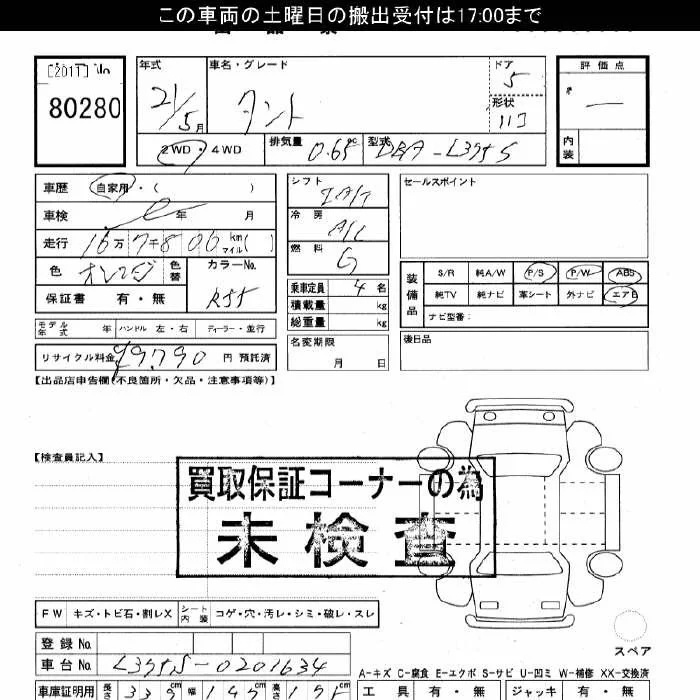 この車両の土曜日の搬出受付は17:00まで
[2017] No
80280
年式
21/5月
車名・グレード
タント
ドア
5
形状
ハコ
評価点
内装
2WD・4WD
排気量 0.65 cc
型式 DBA-L375S
車歴 自家用・( )
車検 年 月
走行 16万7千806 km マイル( )
色 オレンジ 色替
カラーNo.
R55
保証書 有・無
シフト IA/T
冷房 A/C
燃料 G
乗車定員 4名
積載量 kg
総重量 kg
セールスポイント
装備品
S/R 純A/W P/S P/W ABS
純TV 純ナビ 革シート 外ナビ エアB
ナビ型番:
モデル年式 年 ハンドル 左・右 ディーラー・並行
名変期限
月 日
後日品
リサイクル料金 ¥9,790 円 預託済
【出品店申告欄(不良箇所・欠品・注意事項等)】
【検査員記入】
買取保証コーナーの為
未検査
FW キズ・トビ石・割レX シート内装 コゲ・穴・汚レ・シミ・破レ・スレ
スペア
登録No.
車台No. L375S-0201634
A-キズ C-腐食 E-エクボ S-サビ U-凹ミ W-補修 XX-交換済
車庫証明用 長さ 339cm 幅 147cm 高さ 175cm
工具 有・無 ジャッキ 有・無